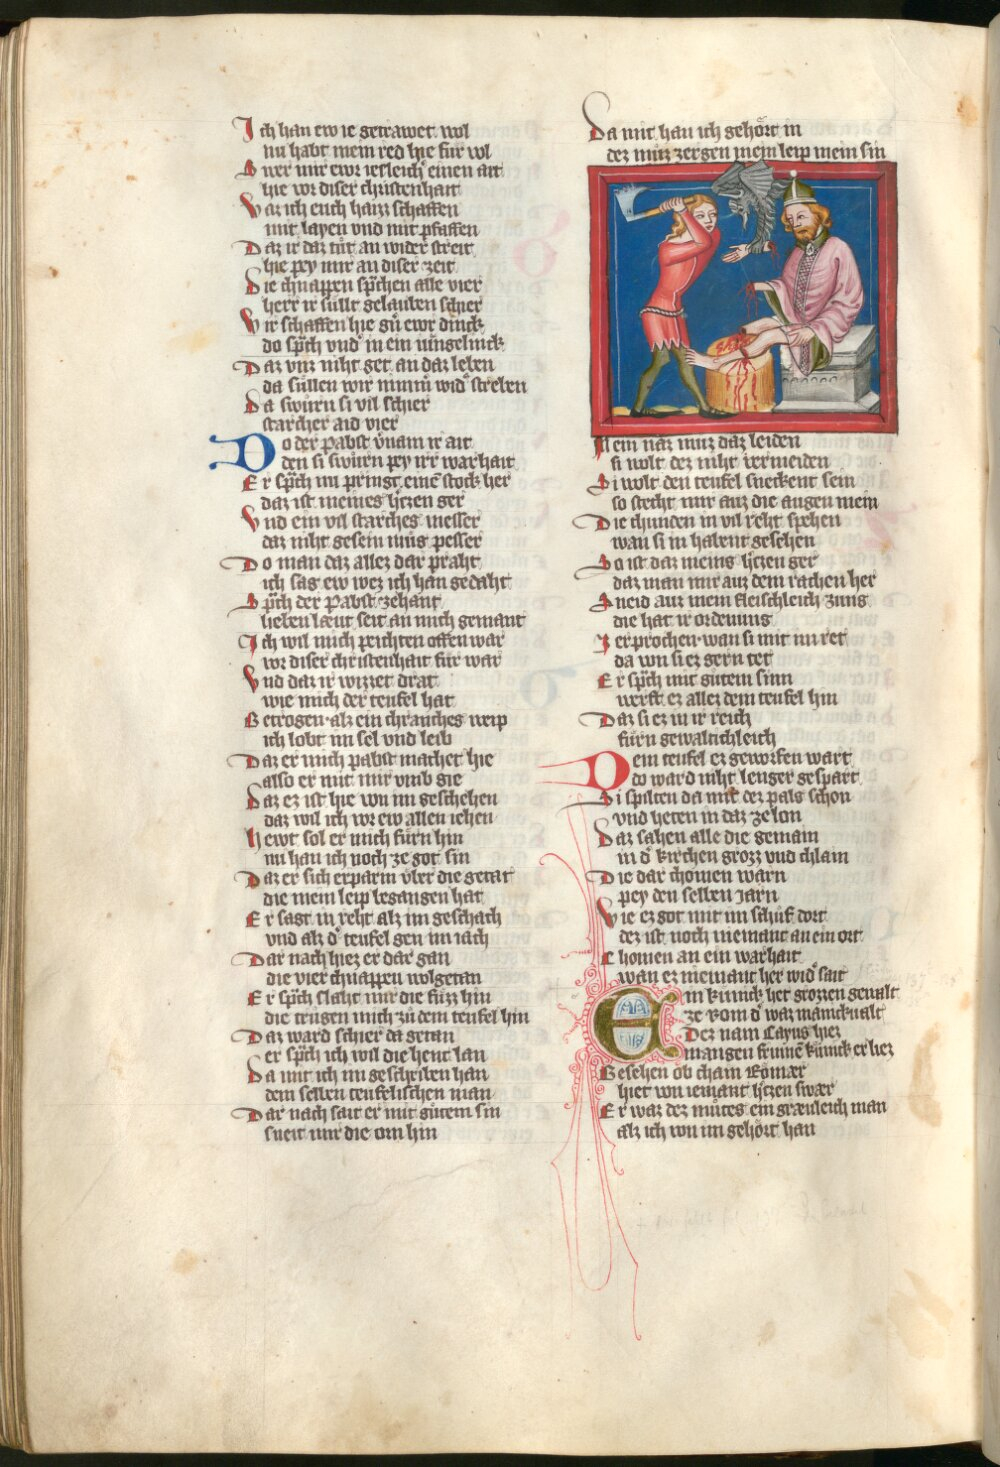 Ich han ew ie getrawet wol
nu habt mein red hie fur vol
Swer mir ewr iesleich einen ait
hie vor diser christenhait
Waz ich euch haizz schaffen
mit layen vnd mit pfaffen
Daz ir daz tůt an wider streit
hie pey mir an diser zeit
Die chnappen sp̄chen alle vier
herr ir sullt gelauben schier
Wir schaffen hie gů ewr dinck
do sp̄ch vnd in ein vngelinck
Daz vnz niht get an daz leben
da sullen wir nimm̄ wid streben
Da swurn si vil schier
starcher aid vier
Do der pabst v̄nam ir ait
den si swurn pey irr warhait
Er sp̄ch nu pringt einē stock her
daz ist meines h̄tzen ger
Vnd ein vil starches messer
daz niht gesein müg pesser
Do man daz allez dar praht
ich sag ew wez ich han gedaht
Sp̄ch der Pabst zehant
lieben læut seit an mich gemant
Ich wil mich peichten offenwar
vor diser christenhait für war
Vnd daz ir wizzet drat
wie mich der teufel hat
Betrogen alz ein chranches weip
ich lobt im sel vnd leib
Daz er mich pabst machet hie
also er mit mir vmb gie
Daz ez ist hie von im geschehen
daz wil ich vor ew allen iehen
Hewt sol er mich fürn hin
nu han ich noch ze got sin
Daz er sich erparm vber die getat
die mein leip begangen hat
Er sagt in reht alz im geschach
vnd alz d teufel gen im iach
Dar nach hiez er dar gan
die vier chnappen wolgetan
Er sp̄ch slaht mir die füzz hin
die trugen mich zů dem teufel hin
Daz ward schier da getan
er sp̄ch ich wil die hent lan
Da mit ich mi geschriben han
dem selben teufelischen man
Dar nach sait er mit gůtem sin
sneit mir die orn hin
Da mit han ich gehört in
dez muz zergen mein leip mein sin
Mein naz muz daz leiden
si wolt dez niht vermeiden
Si wolt den teufel smeckent sein
so stecht mir auz die augen mein
Die chunden in vil reht spehen
wan si in habent gesehen
So ist daz meins h̄tzen ger
daz man mir auz dem rachen her
Sneid auz mein fleischleich zung
die hat ir ordenung
Zerprochen wan si mit im ret
da von si ez gern tet
Er sp̄ch mit gůtem sinn
werft ez allez dem teufel hin
Daz si ez in ir reich
fürn gewaltichleich
Dem teufel ez geworfen wart
do ward niht lenger gespart
Si spilten da mit dez pals schon
vnd heten in daz ze lon
Daz sahen alle die gemain
in d kirchen grozz vnd chlain
Die dar chomen warn
pey den selben iarn
Wie ez got mit im schuf dort
dez ist noch niemant an ein ort
Chomen an ein warhait
wan ez niemant her wid sait
Ein künick het grozzen gewalt
ze rom d waz manickualt
Der nam Carus hiez
mangen frumē künick er liez
Gesehen ob chain Römær
hiet von iemant h̄tzen swær
Er waz dez můtes ein græuleich man
alz ich von im gehört han